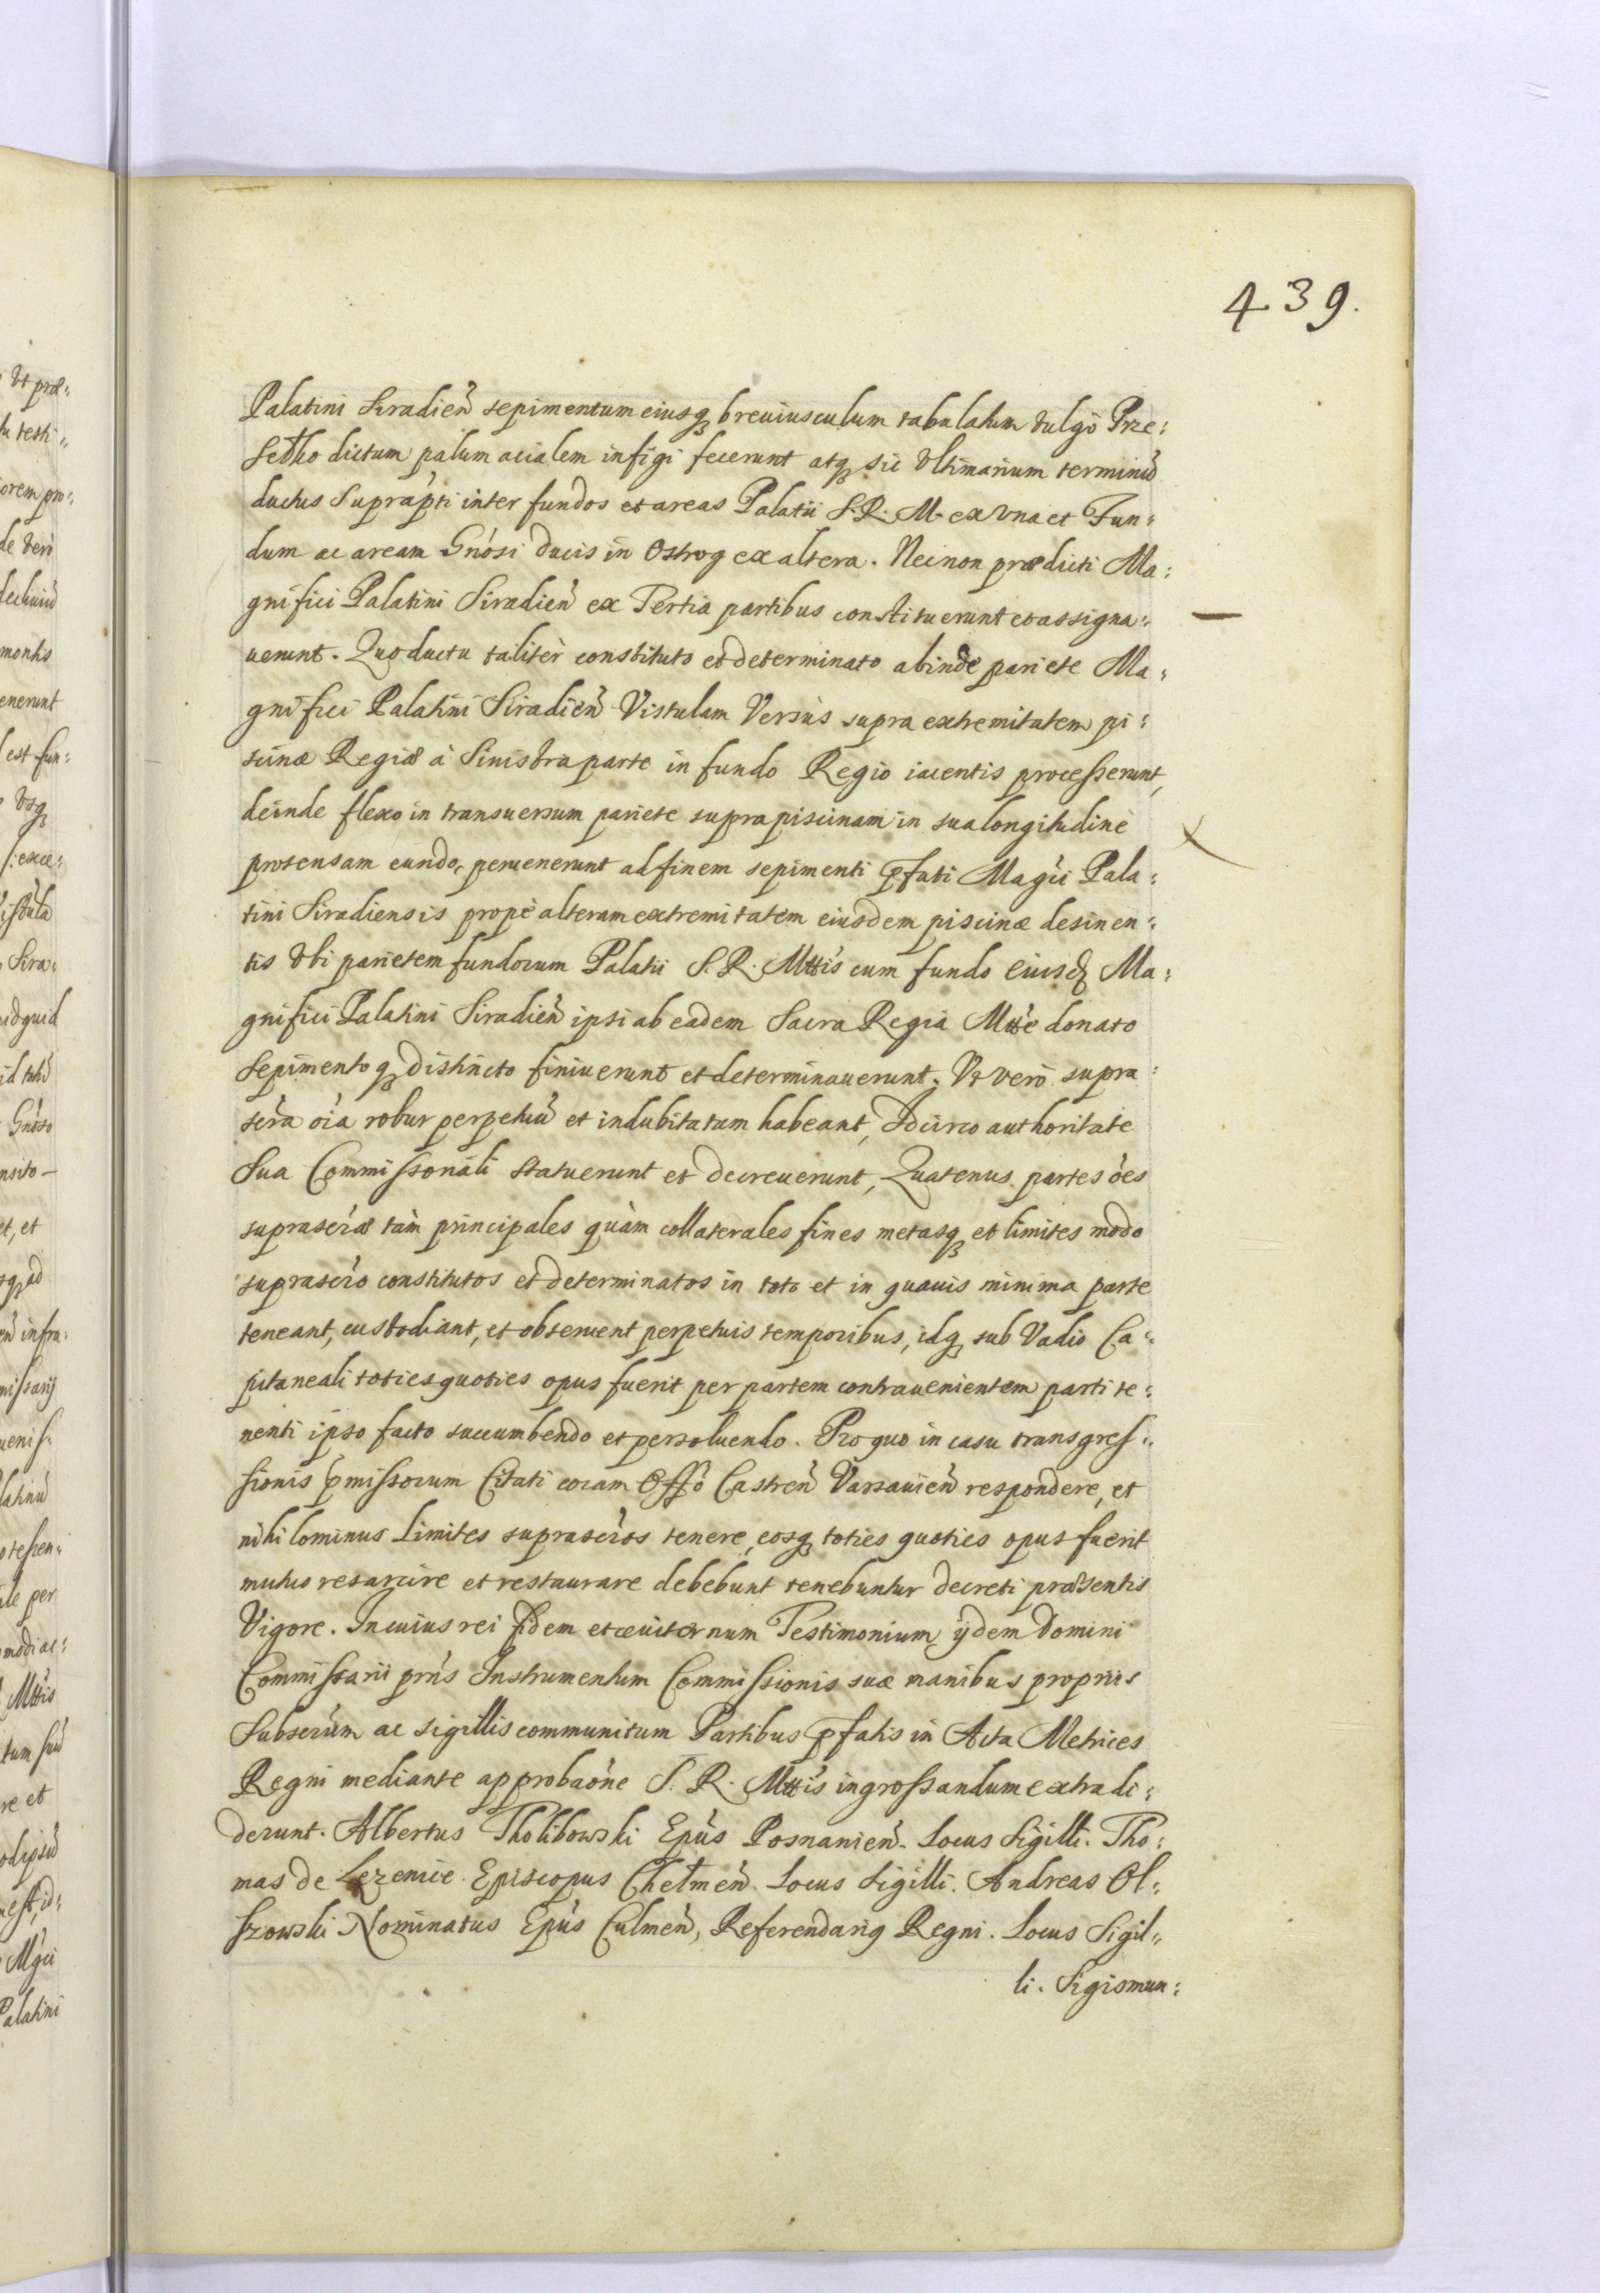 439.
Palatini Siradień sepimentum eiusq breuiusculum tabulatum vulgò Prze:
setho dictum palum acialem infigi fecerunt atq sic Vltimarium terminū
ductus Suprapti inter fundos et areas Palatii S. R. M. ex vna et Fun:
dum ac aream Gnosi Ducis in Ostrog ex altera. Necnon prædicti Ma:
gnifici Palatini Siradień ex Tertia partibus constituerunt et assigna:
uerunt. Quo ductu talitèr constituto et determinato abinde pariete Ma:
gnifici Palatini Siradień Vistulam Versùs supra extremitatem pi:
scinæ Regiæ à Sinistra parte in fundo Regio iacentis processerunt,
deinde flexo in transuersum pariete supra piscinam in sua longitudine
protensam eundo, peruenerunt ad finem sepimenti pfati Magci Pala:
tini Siradiensis propè alteram extremitatem eiusdem piscinæ desinen:
tis Vbi parietem fundorum Palatii S. R. Mttis cum fundo eiusd Ma:
gnifici Palatini Siradień ipsi ab eadem Sacra Regia Mtte donato
Sepimentoq distincto finiuerunt et determinauerunt. Vt verò supra:
scra oia robur perpetuū et indubitatum habeant, Idcirco authoritate
Sua Commissoriali statuerunt et decreuerunt, Quatenus partes oes
suprascræ tàm principales quàm collaterales fines metasq et limites modo
suprascro constitutos et determinatos in toto et in quauis minima parte
teneant, custodiant, et obseruent perpetuis temporibus, idq sub Vadio Ca:
pitaneali toties quoties opus fuerit per partem contrauenientem parti te:
nenti ipso facto succumbendo et persoluendo. Pro quo in casu transgres:
sionis pmissorum Citati coram Offo Castreń Varsauień respondere, et
nihilominus Limites suprascros tenere, eosq toties quoties opus fuerit
mutuo resarcire et restaurare debebunt tenebuntur decreti præsentis
Vigore. In cuius rei fidem et æuiternum Testimonium ijdem Domini
Commissarii prns Instrumentum Commissionis suæ manibus propriis
Subscrum ac sigillis communitum Partibus pfatis in Acta Metrices
Regni mediante approbaone S. R. Mttis ingrossandum extradi:
derunt. Albertus Tholibowski Epus Posnanień. Locus Sigilli. Tho:
mas de Lezenice Episcopus Chełmeń. Locus Sigilli. Andreas Ol:
szowski Nominatus Epus Culmeń, Referendariq Regni. Locus Sigil:
li. Sigismun: